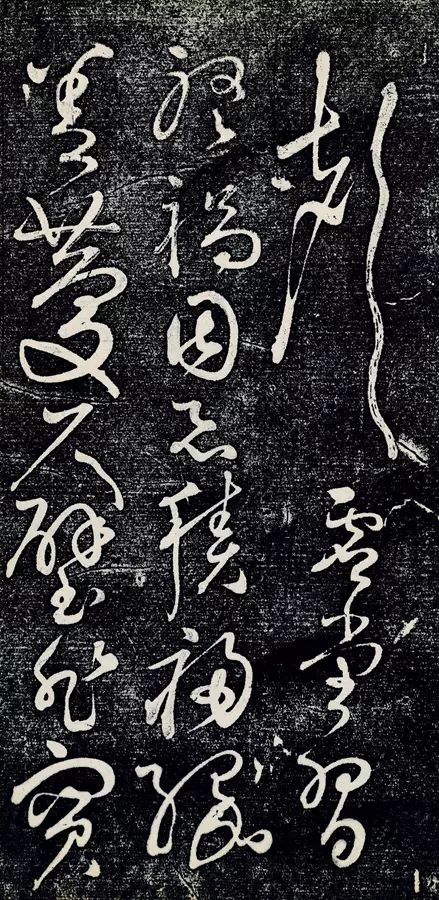 聲虛堂習
聽禍因惡積福緣
善慶尺璧非寶